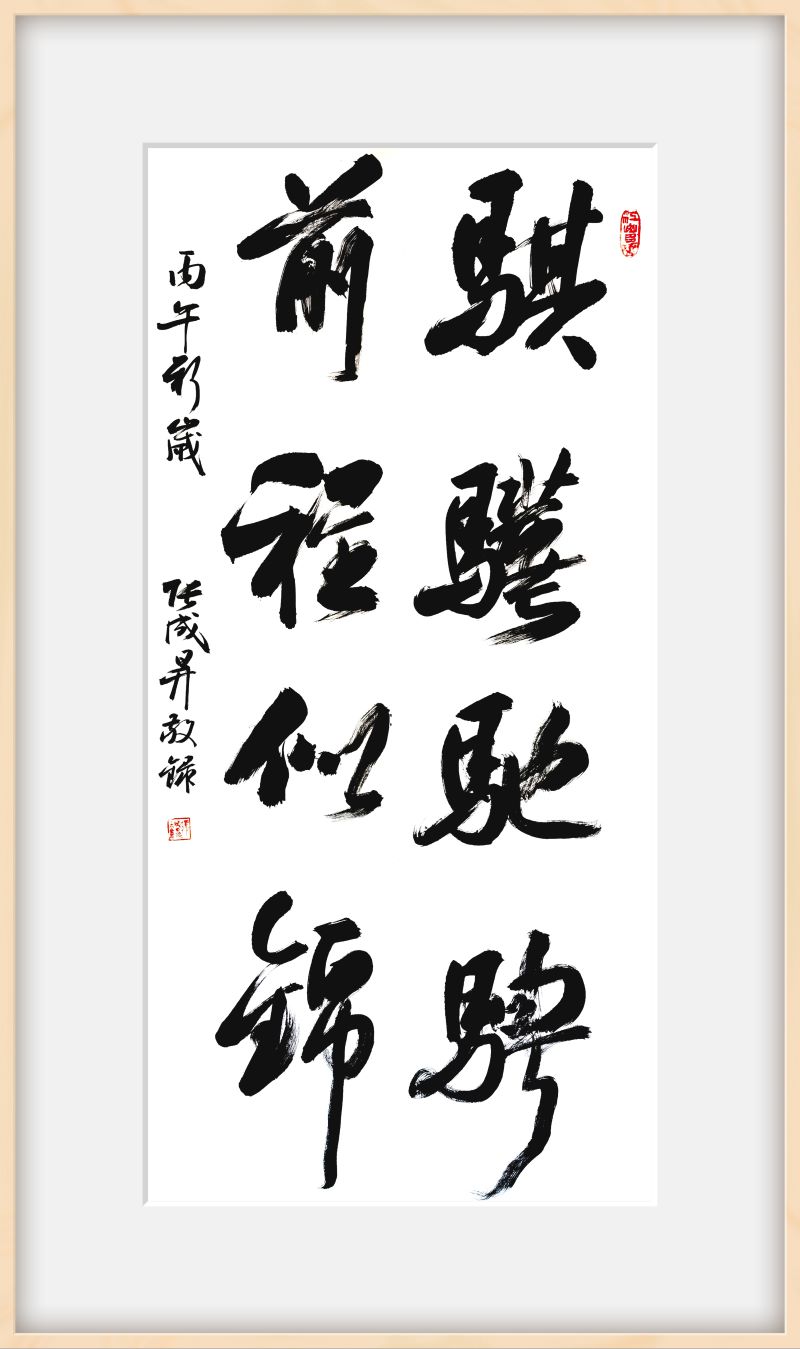 骐骥驰骋
前程似锦
丙午新岁 张成昇敬录